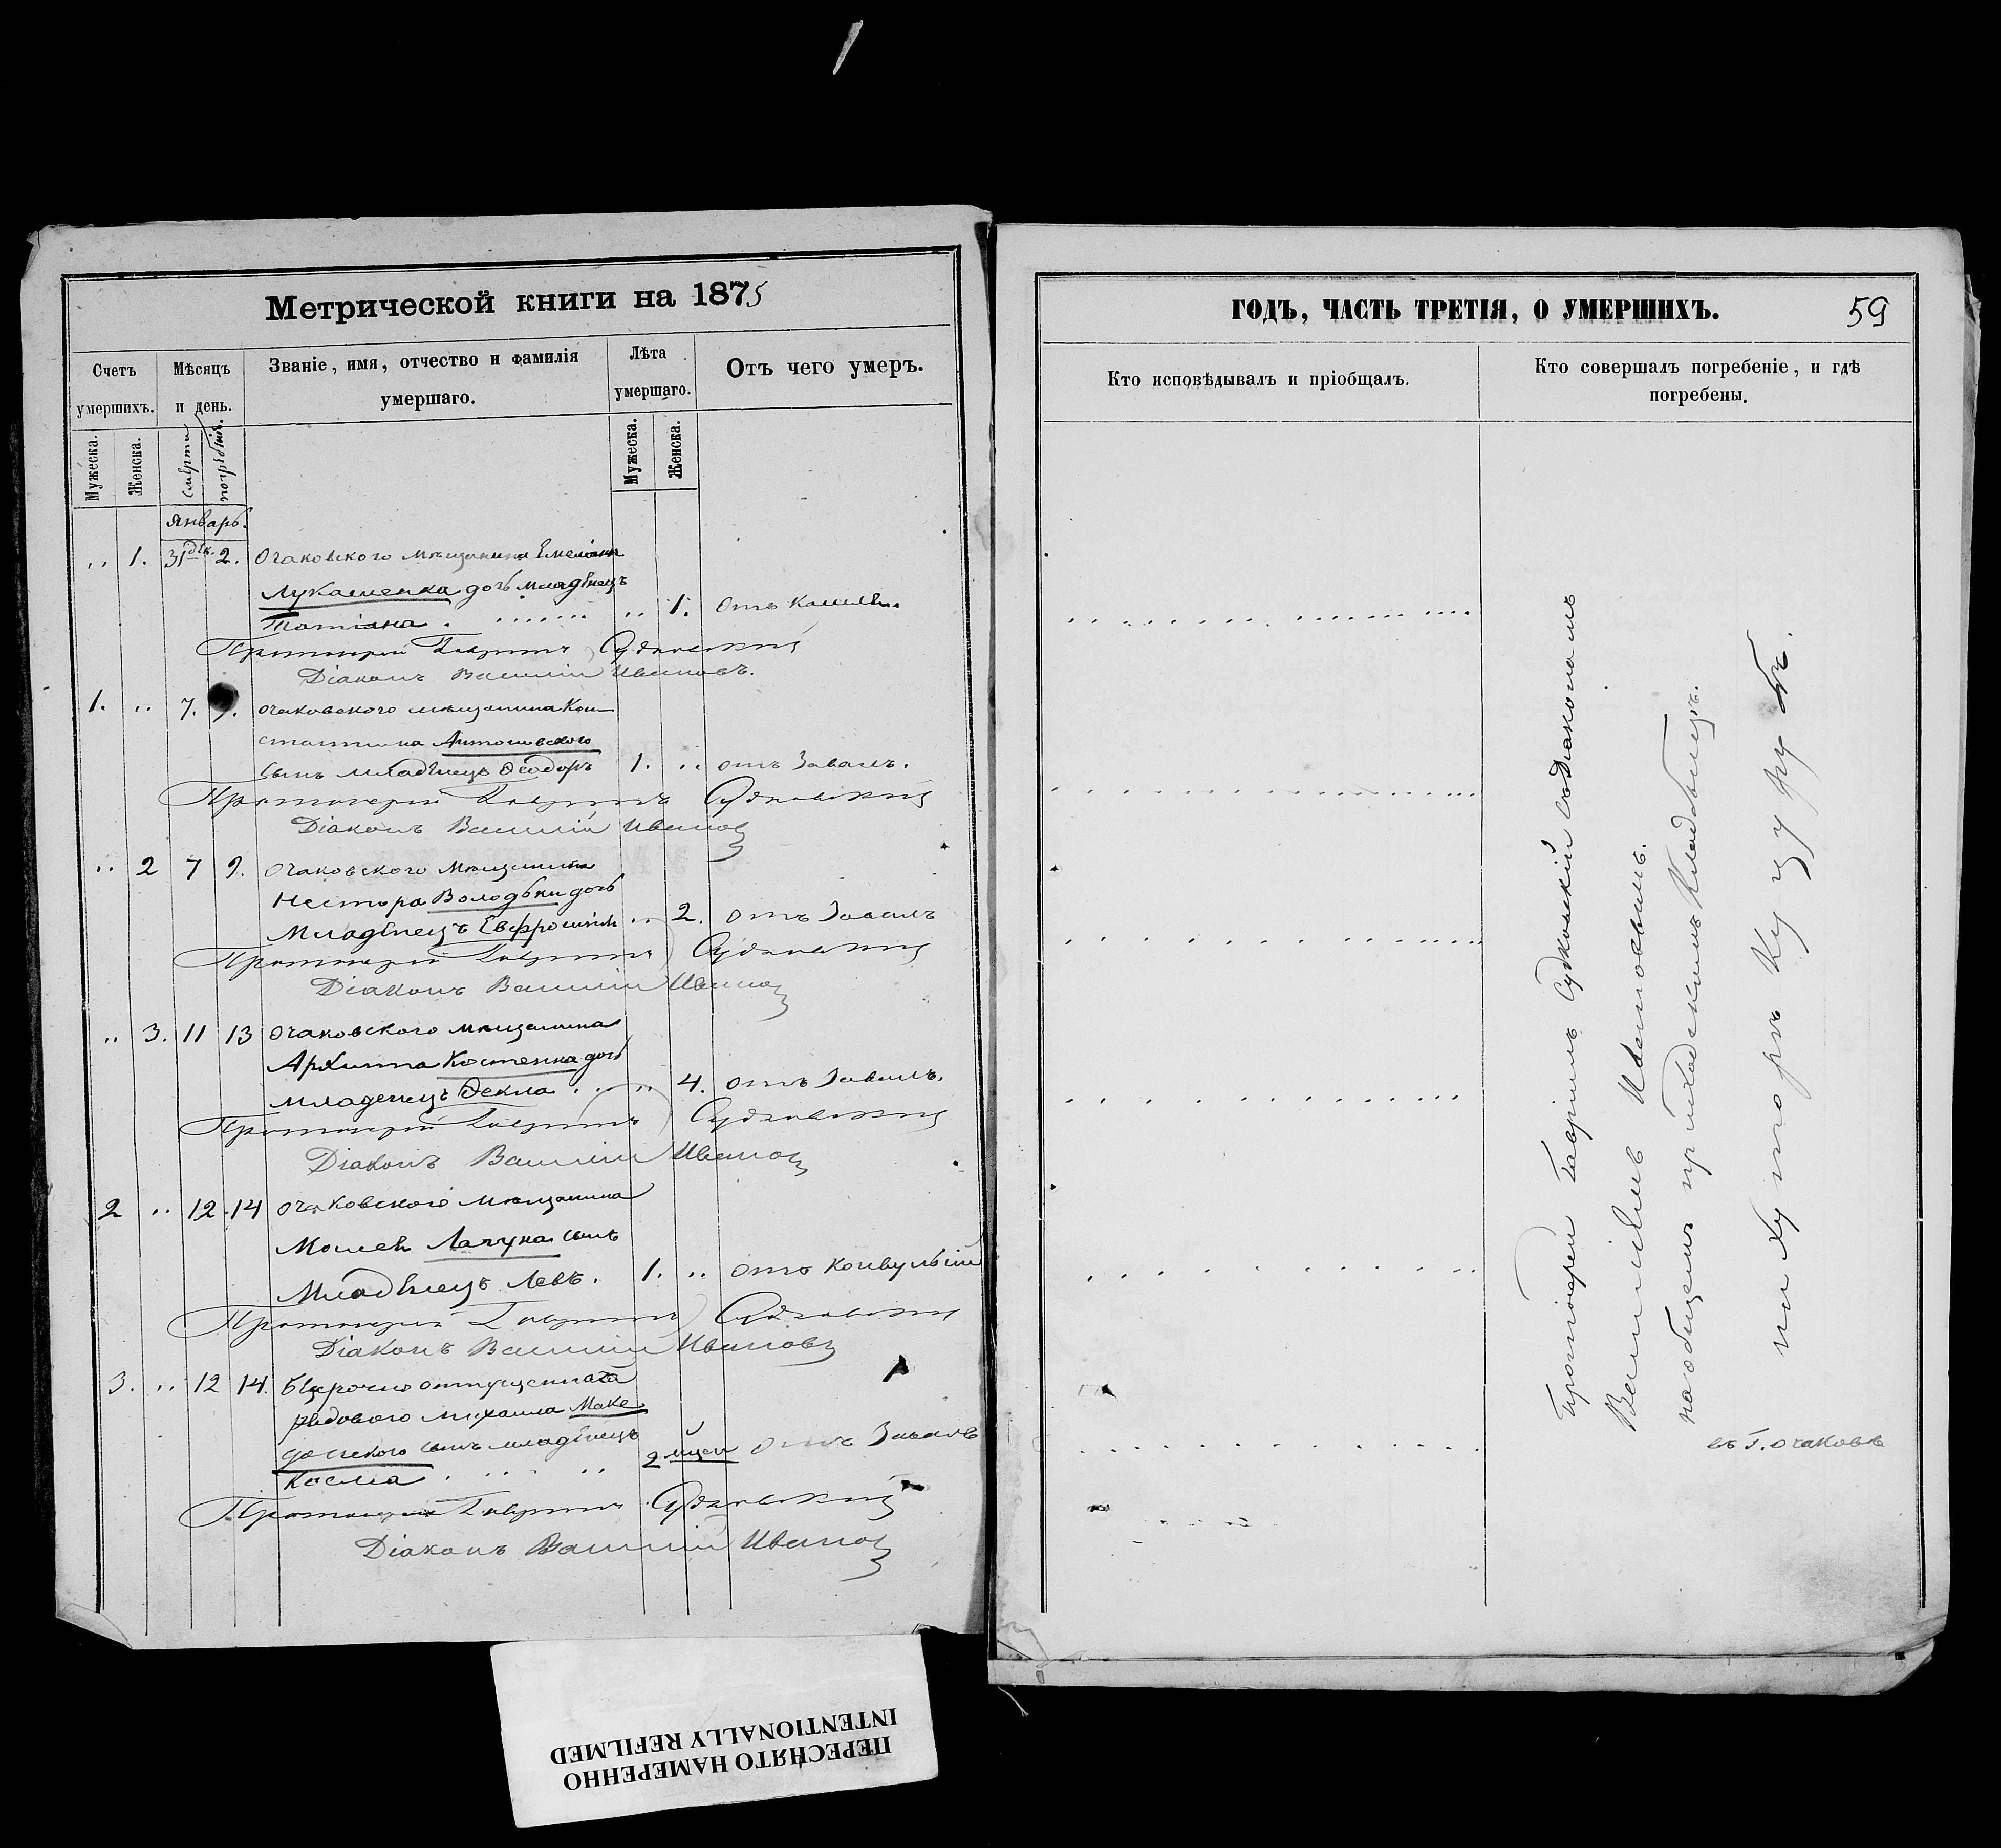 Метрической книги на 1875
Счетъ умершихъ.
Мѣсяцъ и день.
Званіе, имя, отчество и фамилія умершаго.
Лѣта умершаго.
Отъ чего умеръ.
Мужеска.
Женска.
смерти
погребенія.
Мужеска.
Женска.
Январь.
„ 1. 31 дек. 2. Очаковскаго мѣщанина Емеліана
Лукашенка дочь младенецъ
Татіана . . . . . . . „ 1. отъ кашля.
Протоіерей Гавріилъ Судковскій
Діаконъ Василій Ивановъ.
1. „ 7. 9. очаковскаго мѣщанина Кон-
стантина Антоновского
сынъ младенецъ Ѳеодоръ 1. „ отъ Завалъ.
Протоіерей Гавріилъ Судковскій
Діаконъ Василій Ивановъ
„ 2 7 9. очаковского мѣщанина
Нестора Володьки дочь
Младенецъ Евфросинія „ 2. отъ Завалъ
Протоіерей Гавріилъ Судковскій
Діаконъ Василій Ивановъ
„ 3. 11 13 очаковского мѣщанина
Архипа Костенка дочь
младенецъ Ѳекла . . „ 4. отъ Завалъ.
Протоіерей Гавріилъ Судковскій
Діаконъ Василій Ивановъ
2 „ 12 14 очаковского мѣщанина
Моисея сынъ
Младенецъ Левъ. 1. „ отъ конвульсій
Протоіерей Гавріилъ Судковскій
Діаконъ Василій Ивановъ
3. „ 12 14. Безсрочно отпущеннаго
рядового Михаила Маке
донского сынъ младенецъ
Косма . . . . 2 мѣсяц отъ Завалъ
Протоіерей Гавріилъ Судковскій
Діаконъ Василій Ивановъ
ГОДЪ, ЧАСТЬ ТРЕТІЯ, О УМЕРШИХЪ.
59
Кто исповѣдывалъ и пріобщалъ.
Кто совершалъ погребеніе, и гдѣ погребены.
Протоіерей Гавріилъ Судковскій съ Діакономъ
Василіемъ Ивановымъ.
на общемъ приходскомъ Кладбищѣ.
на хуторѣ Куцурубѣ.
въ г. Очаковѣ
ПЕРЕСНЯТО НАМЕРЕННО
INTENTIONALLY REFILMED